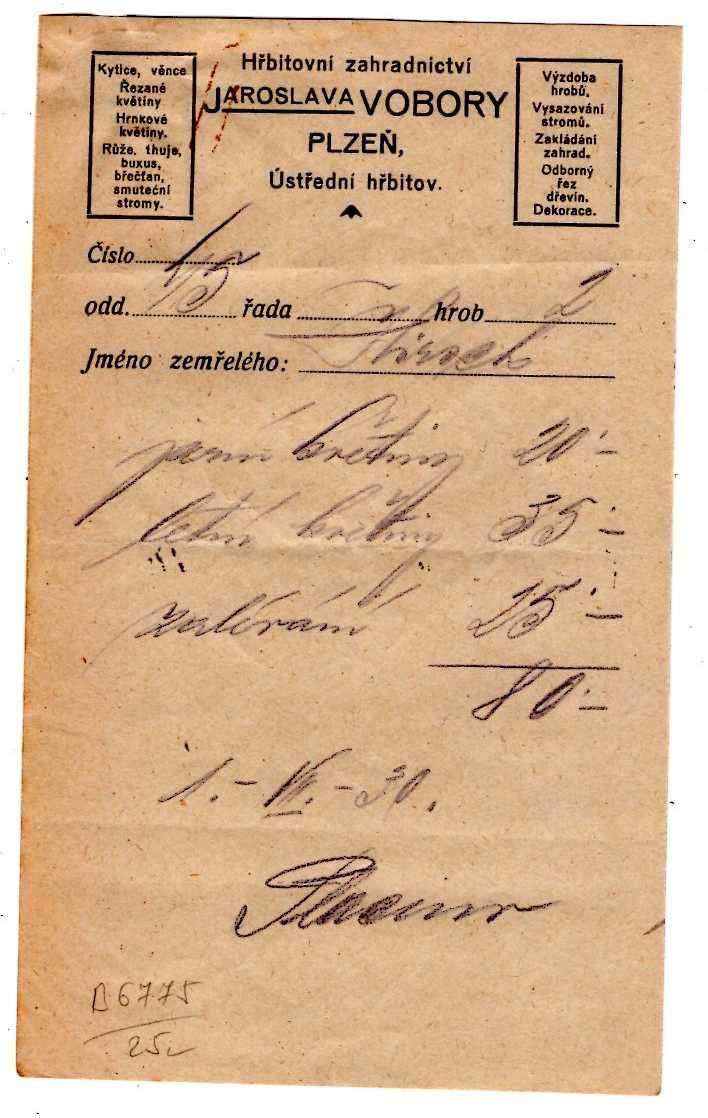 Hřbitovní zahradnictví
JAROSLAVA VOBORY
PLZEŇ,
Ústřední hřbitov.
Kytice, věnce
Řezané
květiny
Hrnkové
květiny.
Růže, thuje,
buxus,
břečťan,
smuteční
stromy.
Výzdoba
hrobů.
Vysazování
stromů.
Zakládání
zahrad.
Odborný
řez
dřevin.
Dekorace.
Číslo
odd. 15 řada hrob 2
Jméno zemřelého:
jarní květiny 20·-
letní květiny 35·-
zalévání 25·-
80·-
1.- VII.- 30.
B 6775
25,-